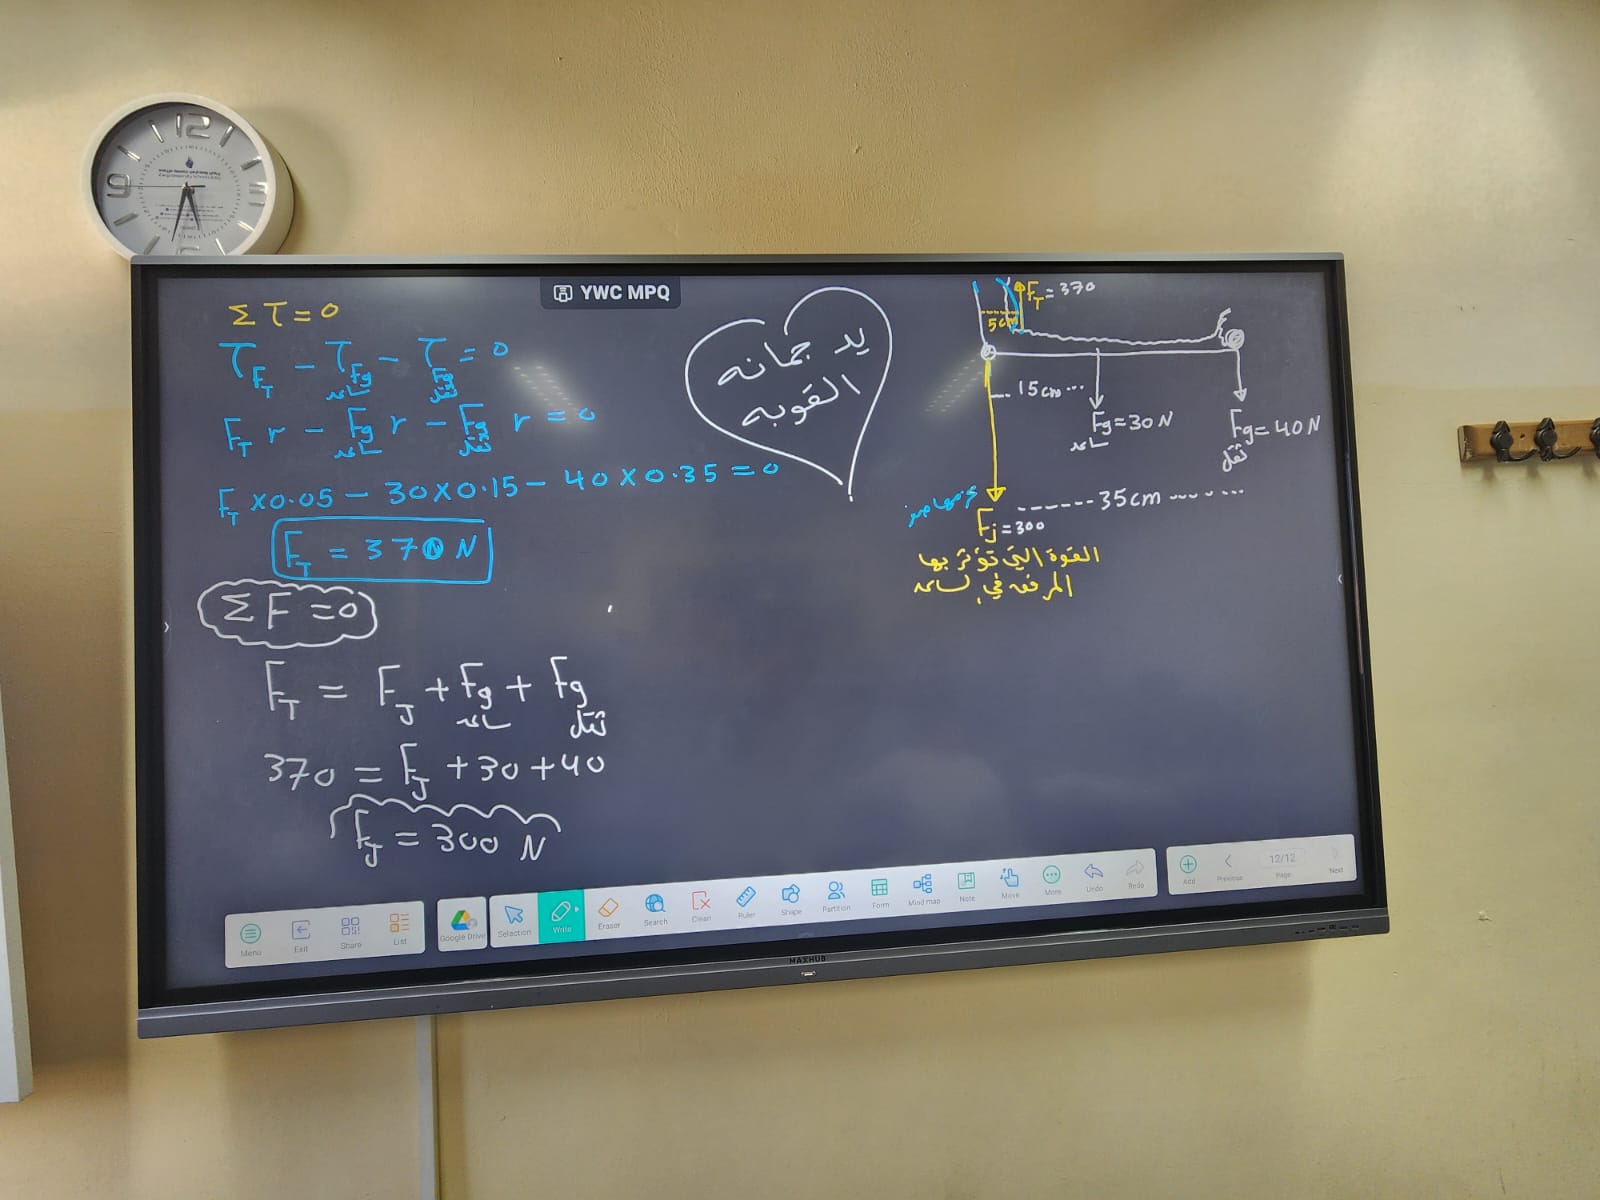 12
9
YWC MPQ
Στ=0
τ_FT − τ_Fg ساعد − τ_Fg ثقل = 0
F_T r − Fg ساعد r − Fg ثقل r = 0
F_T ×0.05 − 30×0.15 − 40×0.35 = 0
F_T = 370 N
ΣF=0
F_T = F_J + Fg ساعد + Fg ثقل
370 = F_J + 30 + 40
F_J = 300 N
يد جمانه
القويه
F_T = 370
5cm
15cm
Fg = 30 N
ساعد
Fg = 40 N
ثقل
35cm
Fj = 300
القوة التي تؤثر بها
المرفق في ساعد
Menu
Exit
Share
List
Google Drive
Selection
Write
Eraser
Search
Clean
Ruler
Shape
Partition
Form
Mind map
Note
Move
More
Undo
Redo
Add
Previous
12/12
Page
Next
MAXHUB